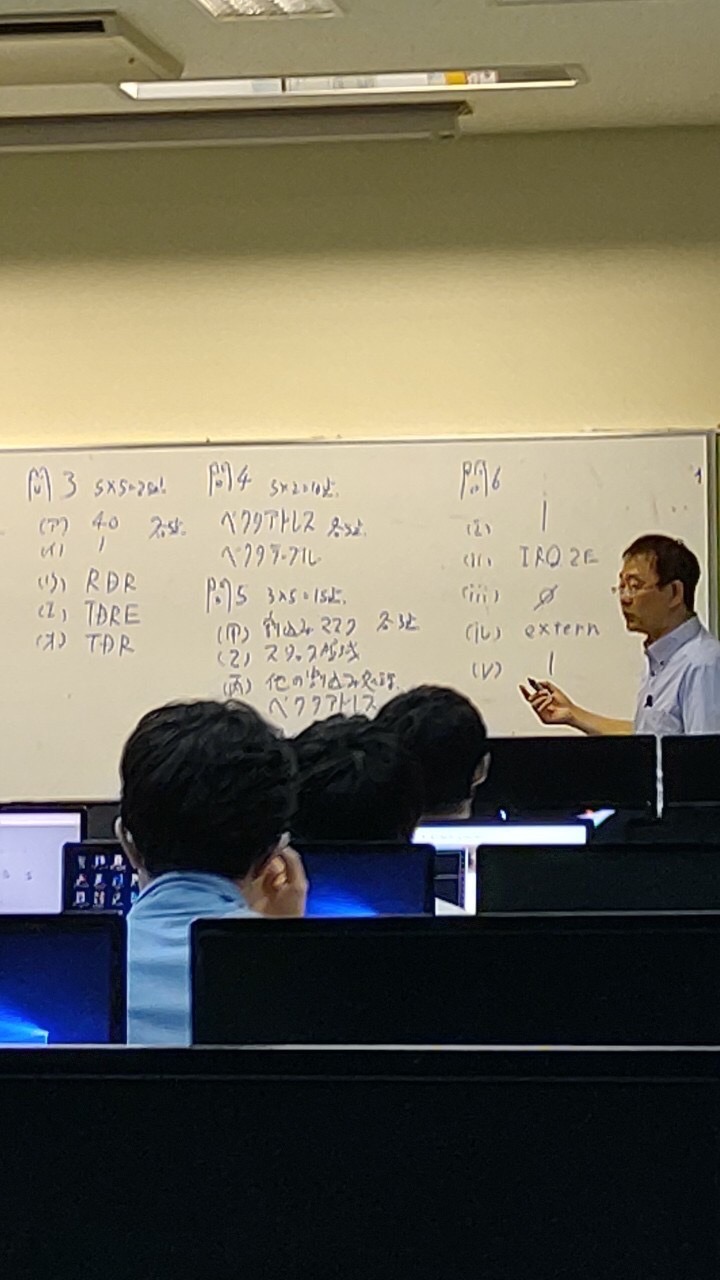 問3 5×5=25点.
(ア) 40 各5点.
(イ) 1
(ウ) RDR
(エ) TDRE
(オ) TDR
問4 5×2=10点.
ベクタアドレス 各5点.
ベクタテーブル
問5 3×5=15点.
(甲) 割込みマスク 各3点
(乙) スタック領域
(丙) 他の割込み処理.
ベクタアドレス
問6
(i) 1
(ii) IRQ2E
(iii) 0
(iv) extern
(v) 1